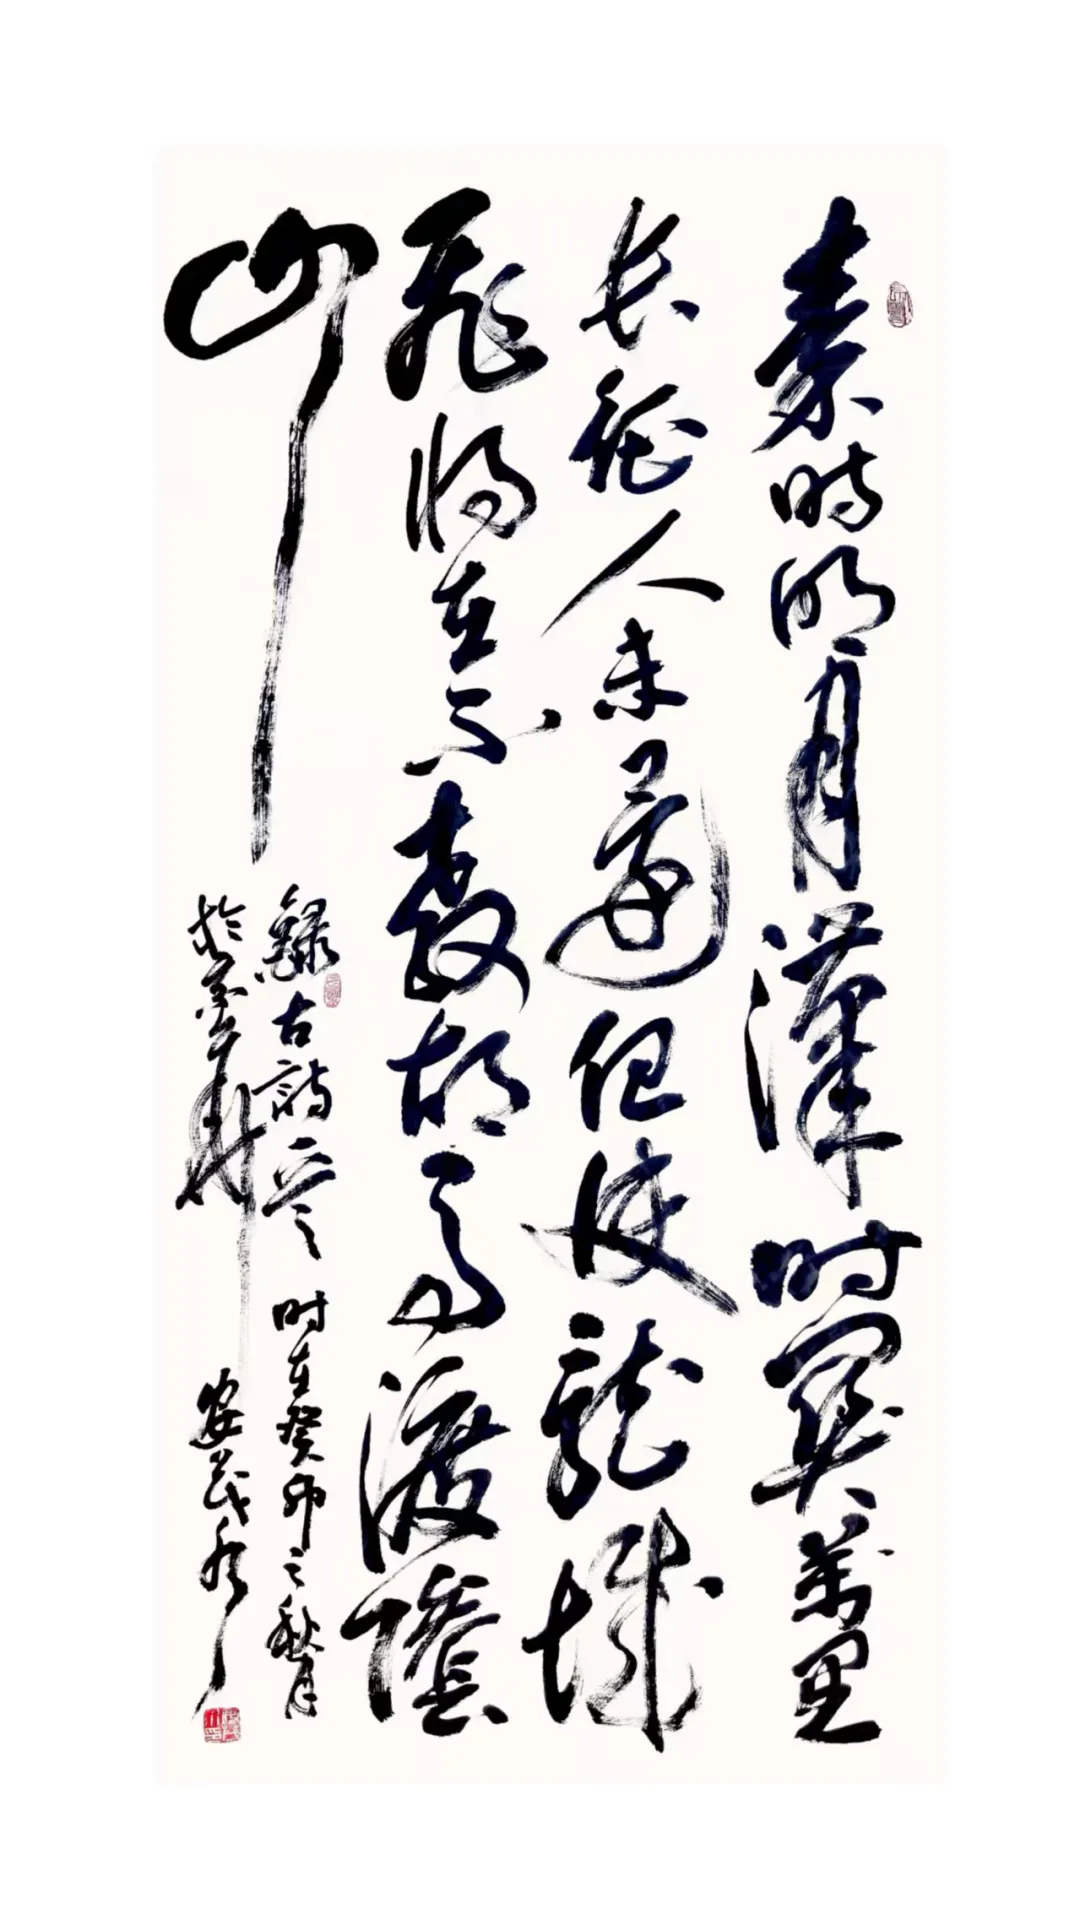 秦時明月漢时關萬里
长征人未還但使龍城
飛将在不教胡馬渡陰
山
錄古詩一首 时在癸卯之秋月
於 安茂